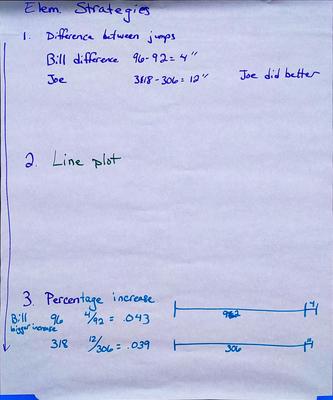 Elem. Strategies
1. Difference between jumps
Bill difference 96-92 = 4"
Joe 3818-306 = 12" Joe did better
2. Line plot
3. Percentage increase
Bill 96 4/92 = .043 4
bigger increase
318 12/306 = .039 306